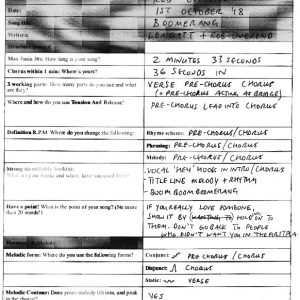 Date: 1ST OCTOBER '18
Song Title: BOOMERANG
Writers: LEA + ROB
How long is your song? 2 MINUTES 33 SECONDS
Chorus within 1 min: Where's yours? 36 SECONDS IN
3 working parts: How many parts do you use and what VERSE PRE-CHORUS CHORUS
are they? (+ PRE-CHORUS ACTS AS BRIDGE)
Where and how do you use Tension And Release? PRE-CHORUS LEAD INTO CHORUS
Definition R.P.M: Where do you change the following: Rhyme scheme: PRE-CHORUS/CHORUS
Phrasing: PRE-CHORUS/CHORUS
Melody: PRE-CHORUS/CHORUS
Strong identifiable hook(s): VOCAL 'HEY' HOOK IN INTRO/CHORUS
What are your hooks and where have you used them? - TITLE LINE MELODY + RHYTHM
- BOOM BOOM BOOMERANG
Have a point! What is the point of your song? (No more IF YOU REALLY LOVE SOMEONE,
than 20 words!) SHOW IT BY HOLDING ON TO
THEM. DON'T GO BACK TO PEOPLE
WHO DIDN'T WANT YOU IN THE FIRST
Melodic form: Where do you use the following forms? Conjunct PRE CHORUS / CHORUS
Disjunct CHORUS
Static: VERSE
Melodic Contour: Does your melody fall into, and peak YES
in the chorus?